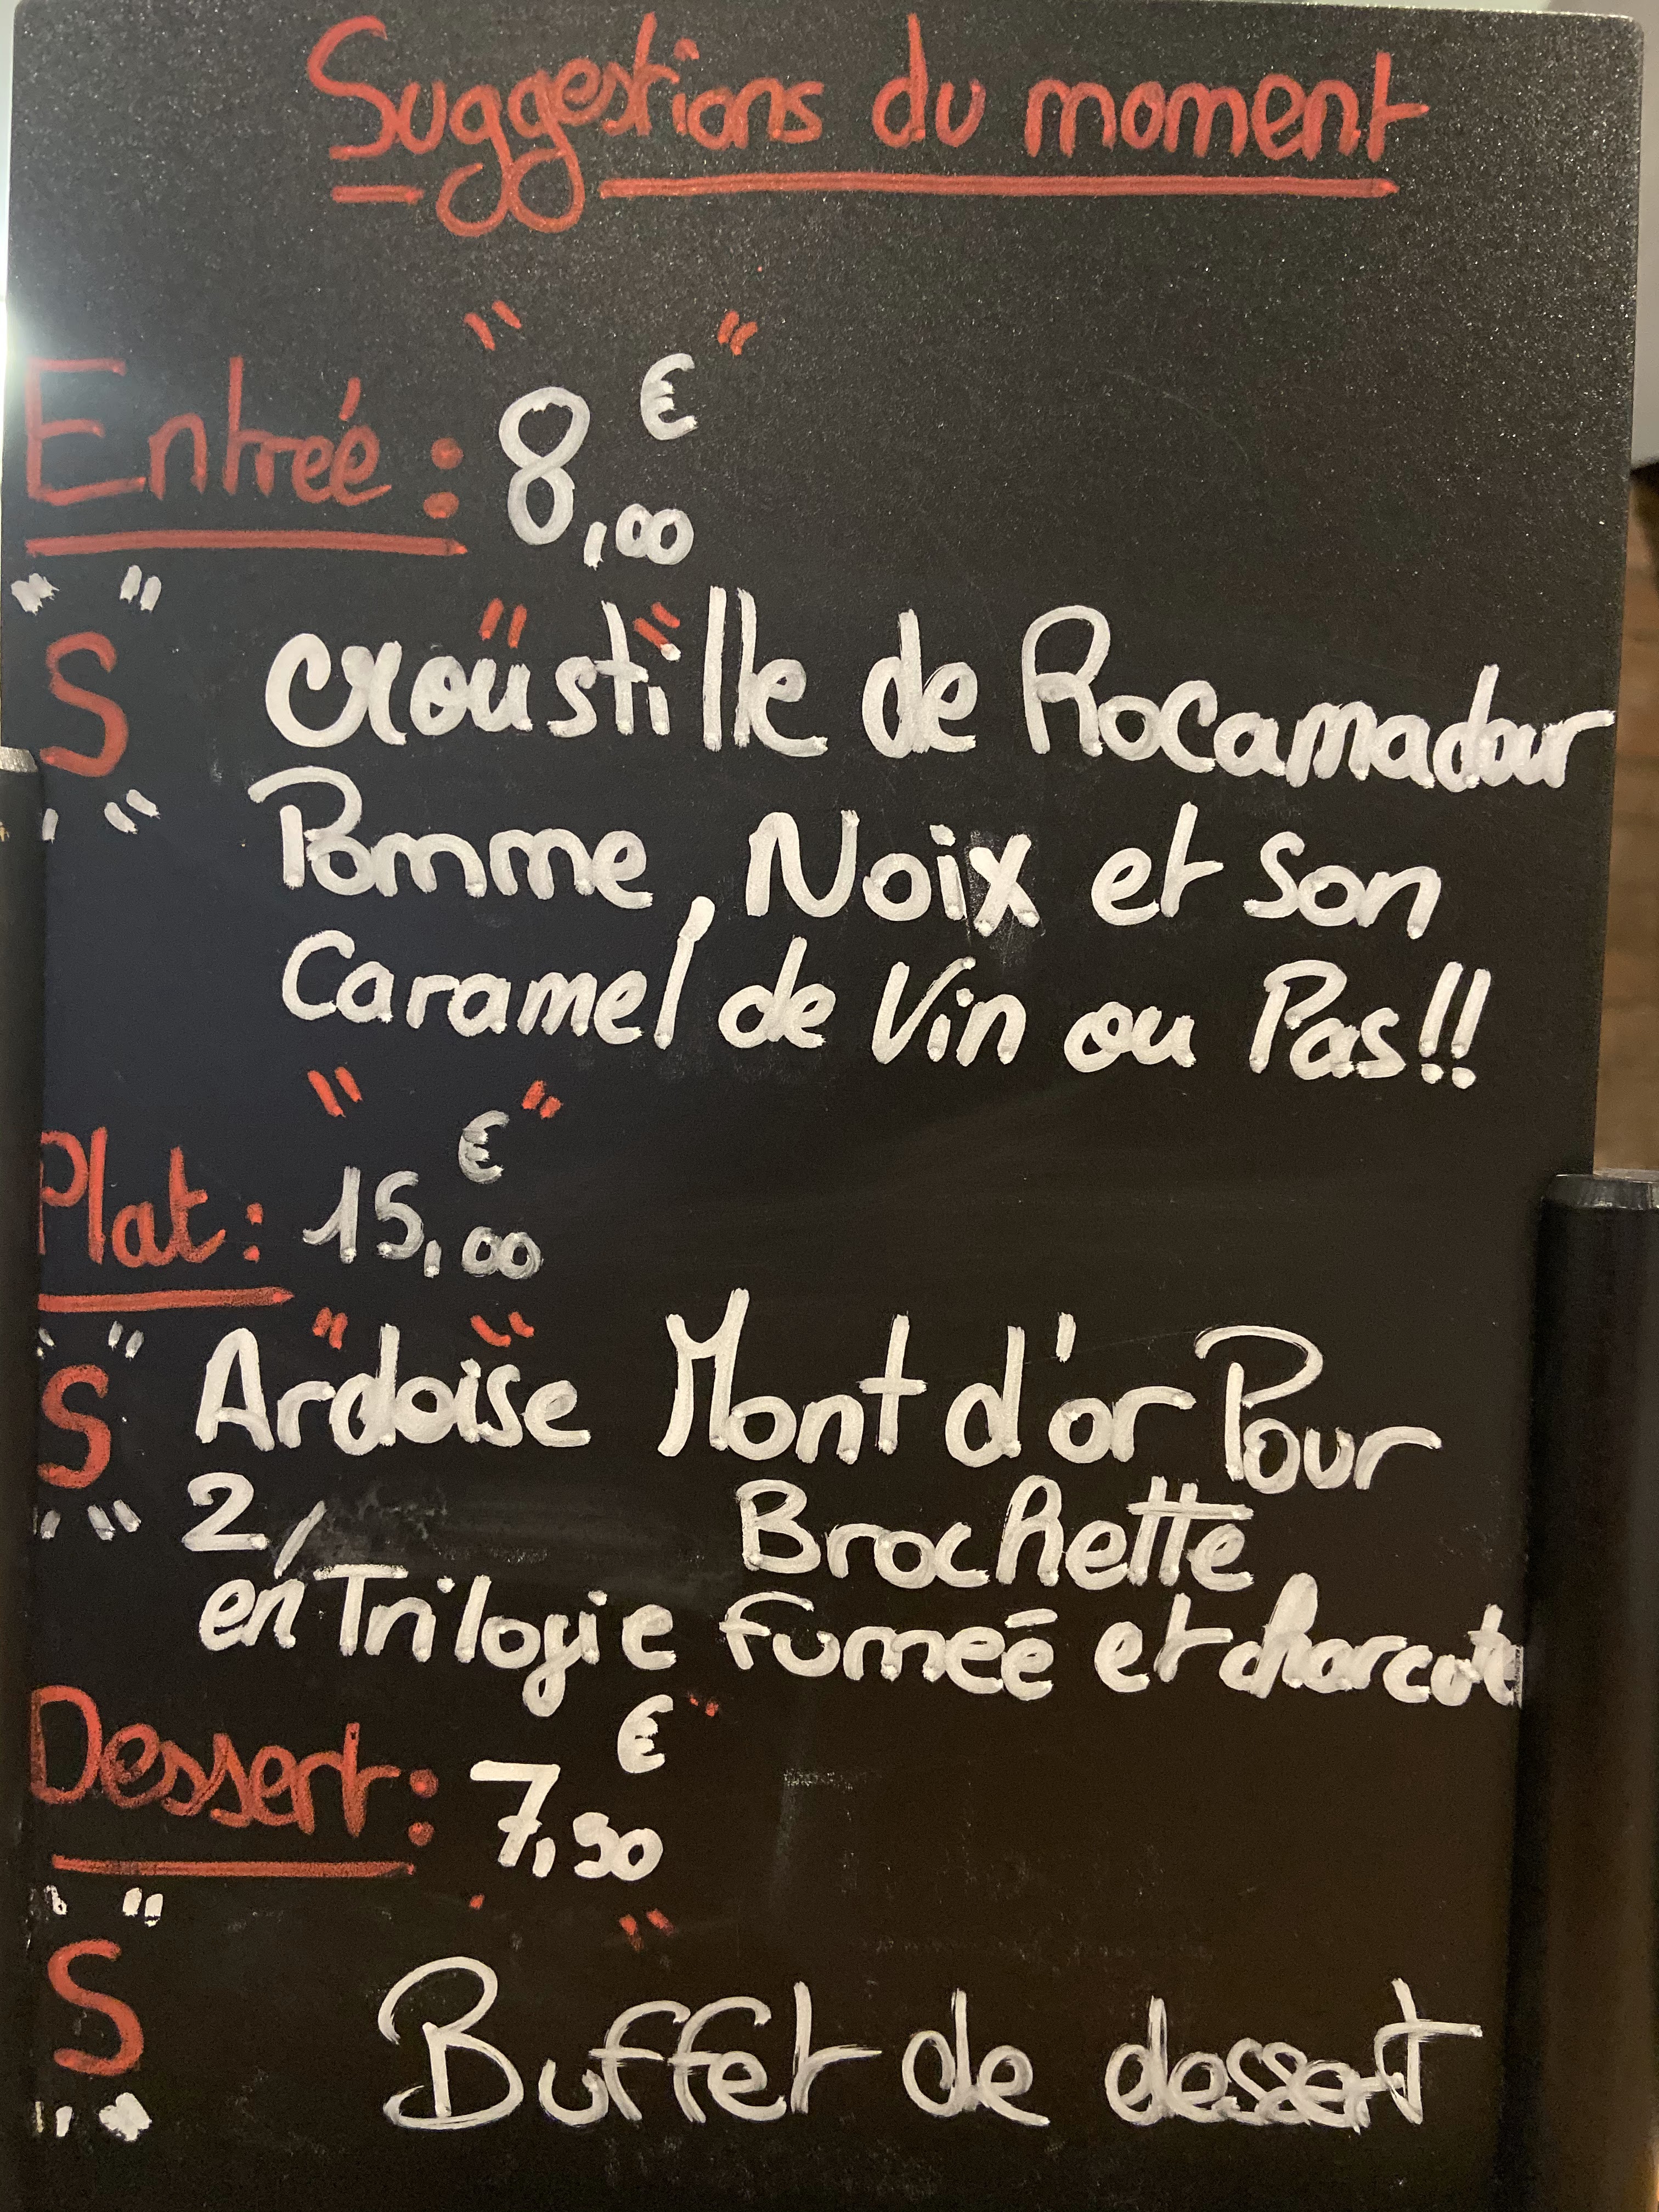 Suggestions du moment
Entrée : 8,00 €
S croustille de Rocamadour
Pomme, Noix et Son
Caramel de Vin ou Pas!!
Plat : 15,00 €
S Ardoise Mont d'or Pour
2, Brochette
en Trilogie fumeé et charcute
Dessert : 7,50 €
S Buffet de dessert